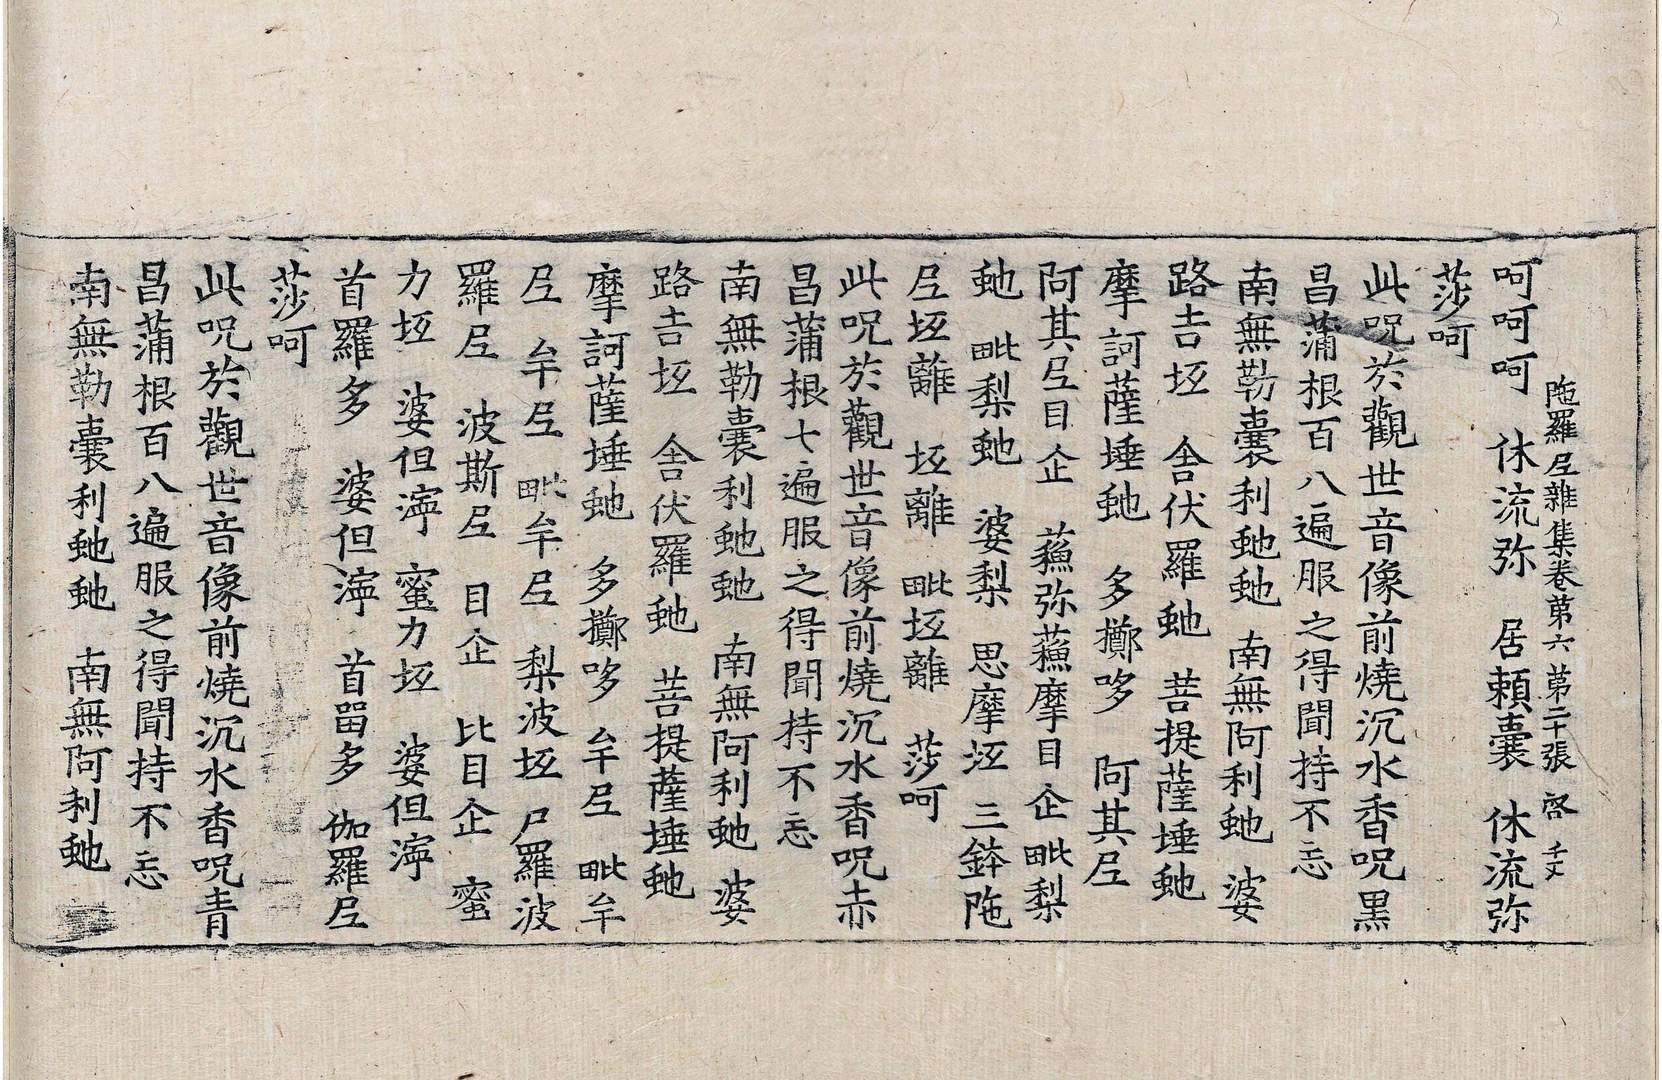 陁羅尼雜集卷第六 第二十張 啓
呵呵呵 休流弥 居頼囊 休流弥
莎呵
此呪於觀世音像前燒沉水香呪黒
昌蒲根百八遍服之得聞持不忘
南無勒囊利虵虵 南無阿利虵 婆
路吉坻 舎伏羅虵 菩提薩埵虵
摩訶薩埵虵 多擲哆 阿其𡰱
阿其𡰱目企 蘓弥蘓摩目企 毗梨
虵 毗梨虵 婆梨 思摩坻 三鉢陁
𡰱坻離 坻離 毗坻離 莎呵
此呪於觀世音像前燒沉水香呪赤
昌蒲根七遍服之得聞持不忘
南無勒囊利虵虵 南無阿利虵 婆
路吉坻 舎伏羅虵 菩提薩埵虵
摩訶薩埵虵 多擲哆 牟𡰱 毗牟
𡰱 牟𡰱 毗牟𡰱 梨波坻 尸羅波
羅𡰱 波斯𡰱 目企 比目企 蜜
力坻 婆但濘 蜜力坻 婆但濘
首羅多 婆但濘 首留多 伽羅𡰱
莎呵
此呪於觀世音像前燒沉水香呪青
昌蒲根百八遍服之得聞持不忘
南無勒囊利虵虵 南無阿利虵